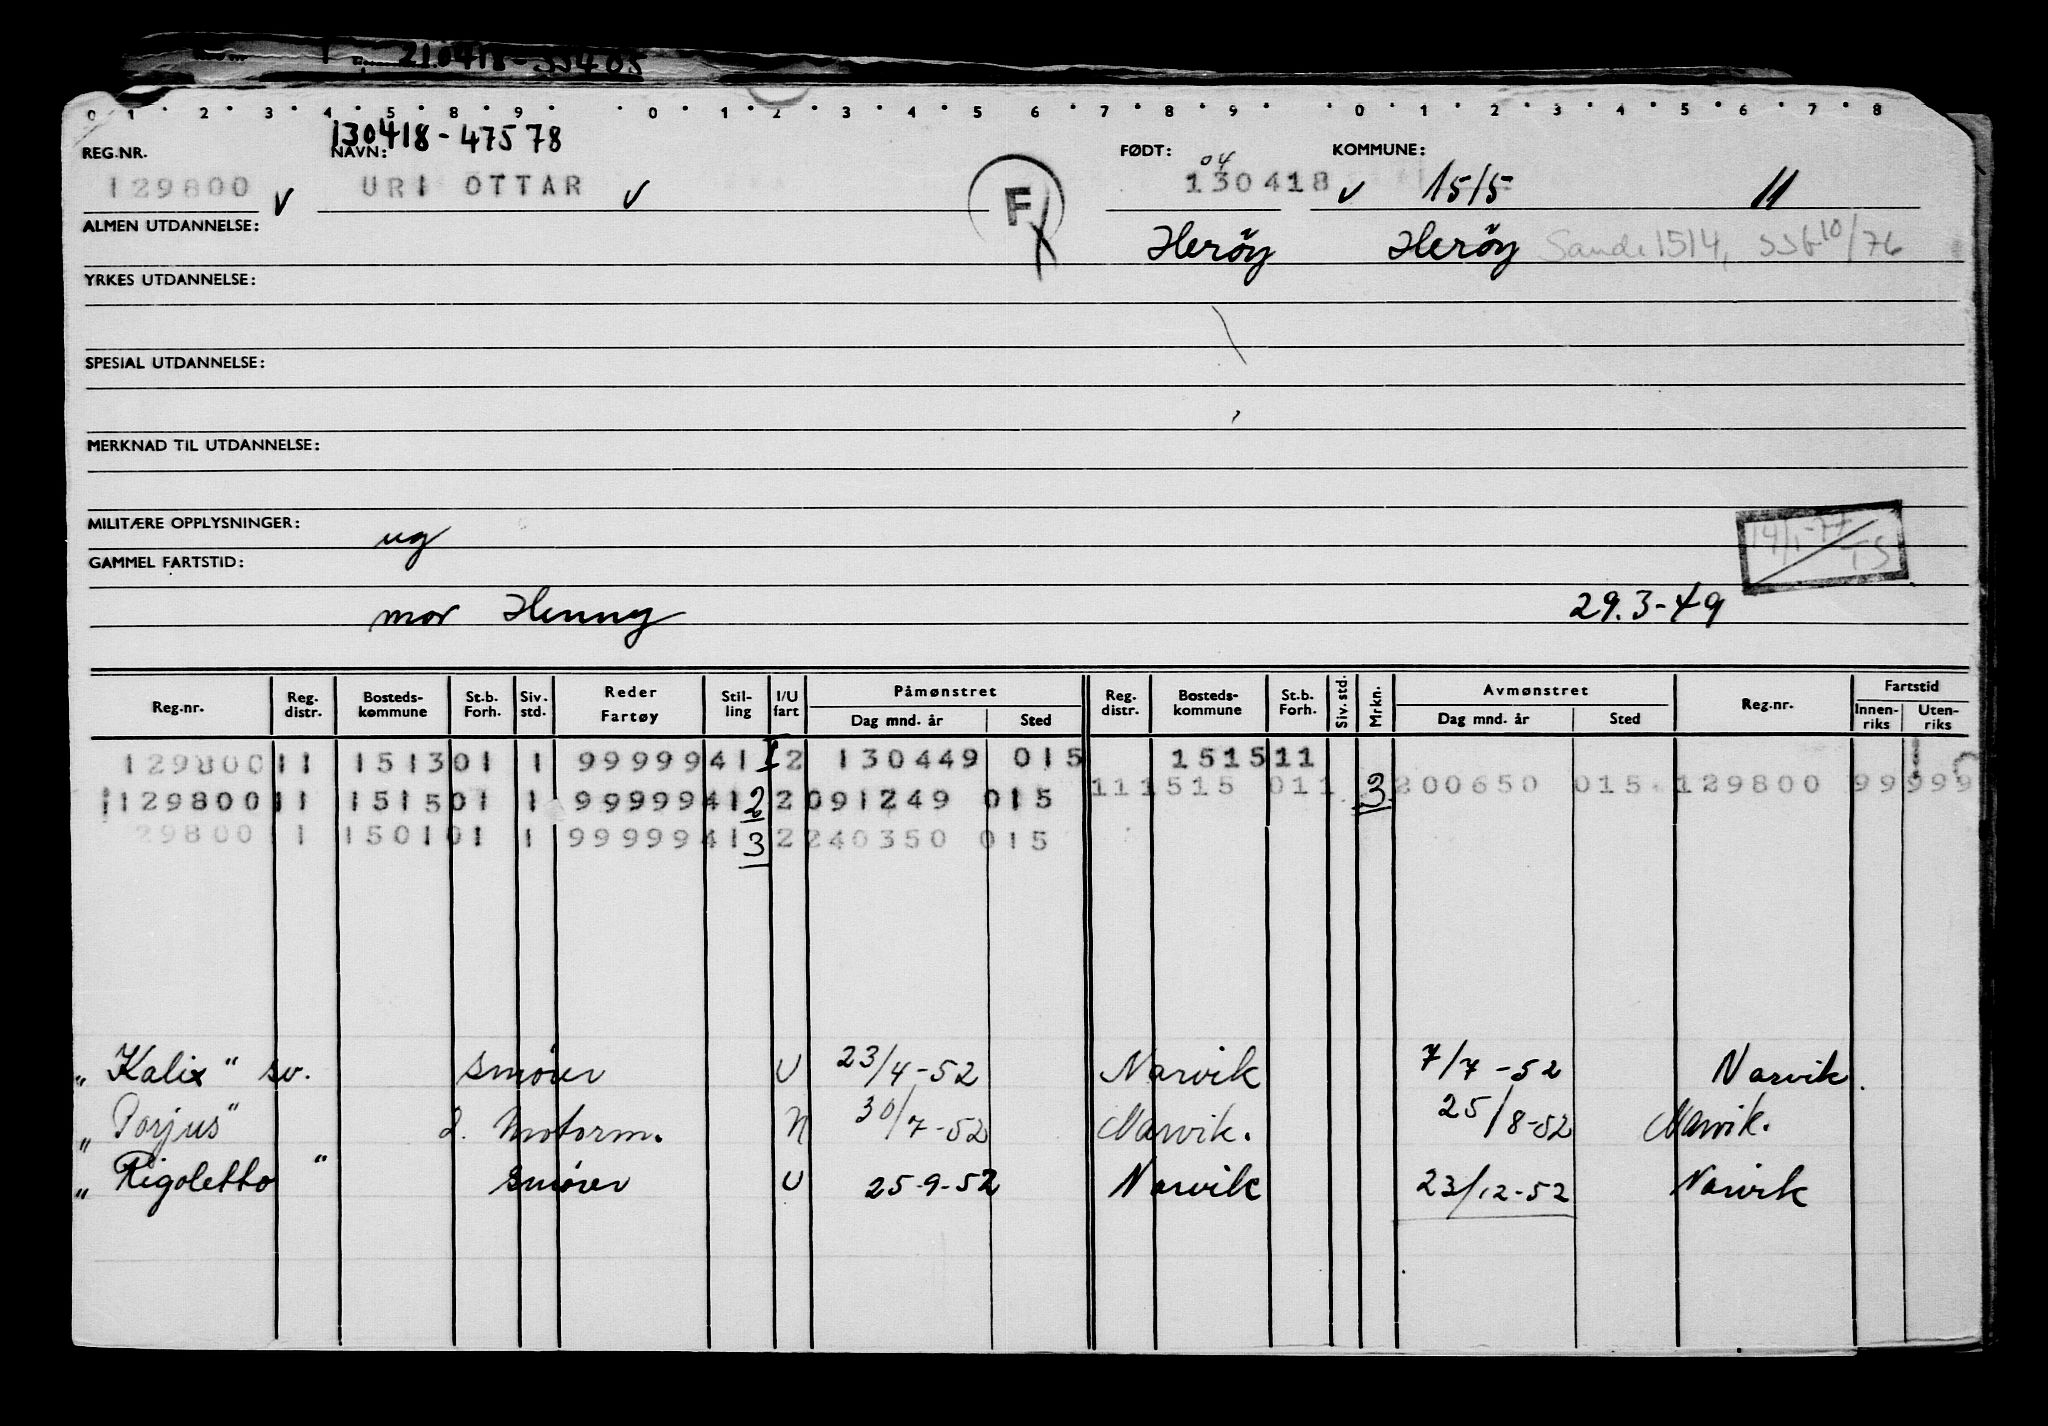 210418-55405
0 1 2 3 4 5 8 9 0 1 2 3 4 5 6 7 8 9 0 1 2 3 4 5 6 7 8
130418-47578
REG.NR. NAVN: FØDT: 04 KOMMUNE:
129800 v URI OTTAR v F 130418 v 1515 11
ALMEN UTDANNELSE: Herøy Herøy Sande 1514, SSB 10/76
YRKES UTDANNELSE:
SPESIAL UTDANNELSE:
MERKNAD TIL UTDANNELSE:
MILITÆRE OPPLYSNINGER: ug
14/1-77 TS
GAMMEL FARTSTID:
mor Henny 29.3-49
Reg.nr. Reg. distr. Bosteds-kommune St.b. Forh. Siv. std. Reder Fartøy Stil-ling I/U fart Påmønstret Reg. distr. Bosteds-kommune St.b. Forh. Siv. std. Mrkn. Avmønstret Reg.nr. Fartstid
Dag mnd. år Sted Dag mnd. år Sted Innen-riks Uten-riks
129800 11 1513 01 1 99999 411 2 130449 015 1515 11
11 1515 01 1 3 200650 015 129800 99999
129800 11 1515 01 1 99999 412 2 091249 015
29800 1 1501 01 1 99999 413 2 240350 015
"Kalix" sv. smører U 23/4-52 Narvik 7/7-52 Narvik.
"Porjus" 2. Motorm. N 30/7-52 Narvik. 25/8-52 Narvik.
"Rigoletto" smører U 25-9-52 Narvik 23/12-52 Narvik